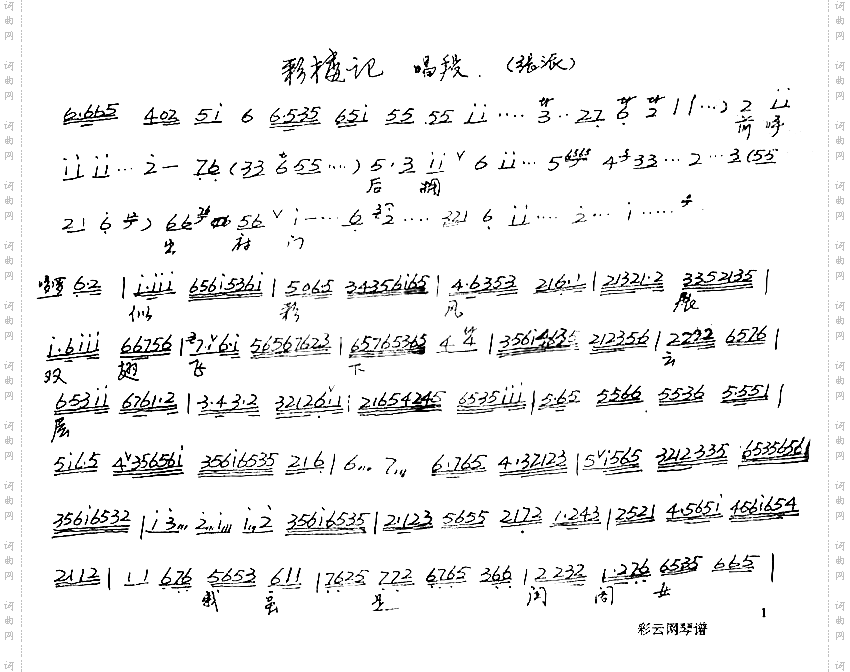 彩楼记 唱段.（張派）
6.665 402 5i 6 6.535 65i 55 55 ii···· 3·· 27 6 2 | | ···) 2 ii
前 呼
ii ii··· 2 — 76 (33 6 55 ···) 5·3 ii ∨ 6 ii··· 5 4 33··· 2··· 3 (55
后 拥
21 6 ) 66 56 ∨ i···· 6 2 ···· 321 6 ii···· 2··· i·····
出 村 门
6·2 | i·iii 656i536i | 5065 34356i65 | 4·6353 216·1 | 21321·2 3352135 |
似 彩 凤 展
i·6iii 66756 | 7i6·i 56567623 | 65765365 4 4 | 356i4635 212356 | 2272 6576 |
双 翅 飞 下 云
653ii 6761·2 | 3·4·3·2 32126i1 | 21654245 6535iii | 5·65 5566 5536 5·551 |
层
5i65 4356561 356i6535 216 | 6... 7... 6·765 4·32123 | 5i565 3212335 6535656i
356i6532 | i3... 2i... i2 356i6535 | 2·123 5655 2172 1·243 | 2521 4·565i 456i654
2112 | 11 676 5653 611 | 7625 772 6765 366 | 2232 1·276 6535 665 |
我 是 闺 阁 女
1
彩云网琴谱
词曲网